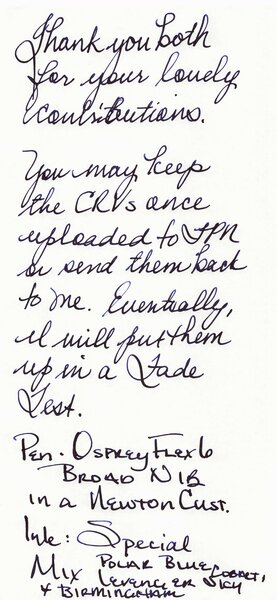 Thank you both
for your lovely
contributions.
You may keep
the CRVs once
uploaded to FPN
or send them back
to me. Eventually,
I will put them
up in a Fade
Test.
Pen: Osprey Flex 6
Broad Nib
in a Newton Cust.
Ink: Special
Mix Polar Blue
Levenger Cobalt,
+ Birmingham Sky